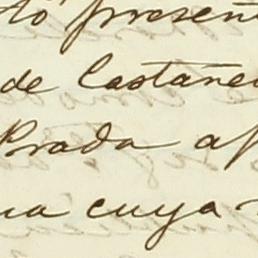 to presen
de Castañe
Prada a
na cuya